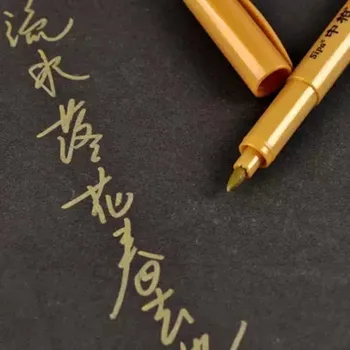 流水落花春去也
Sipa 中柏